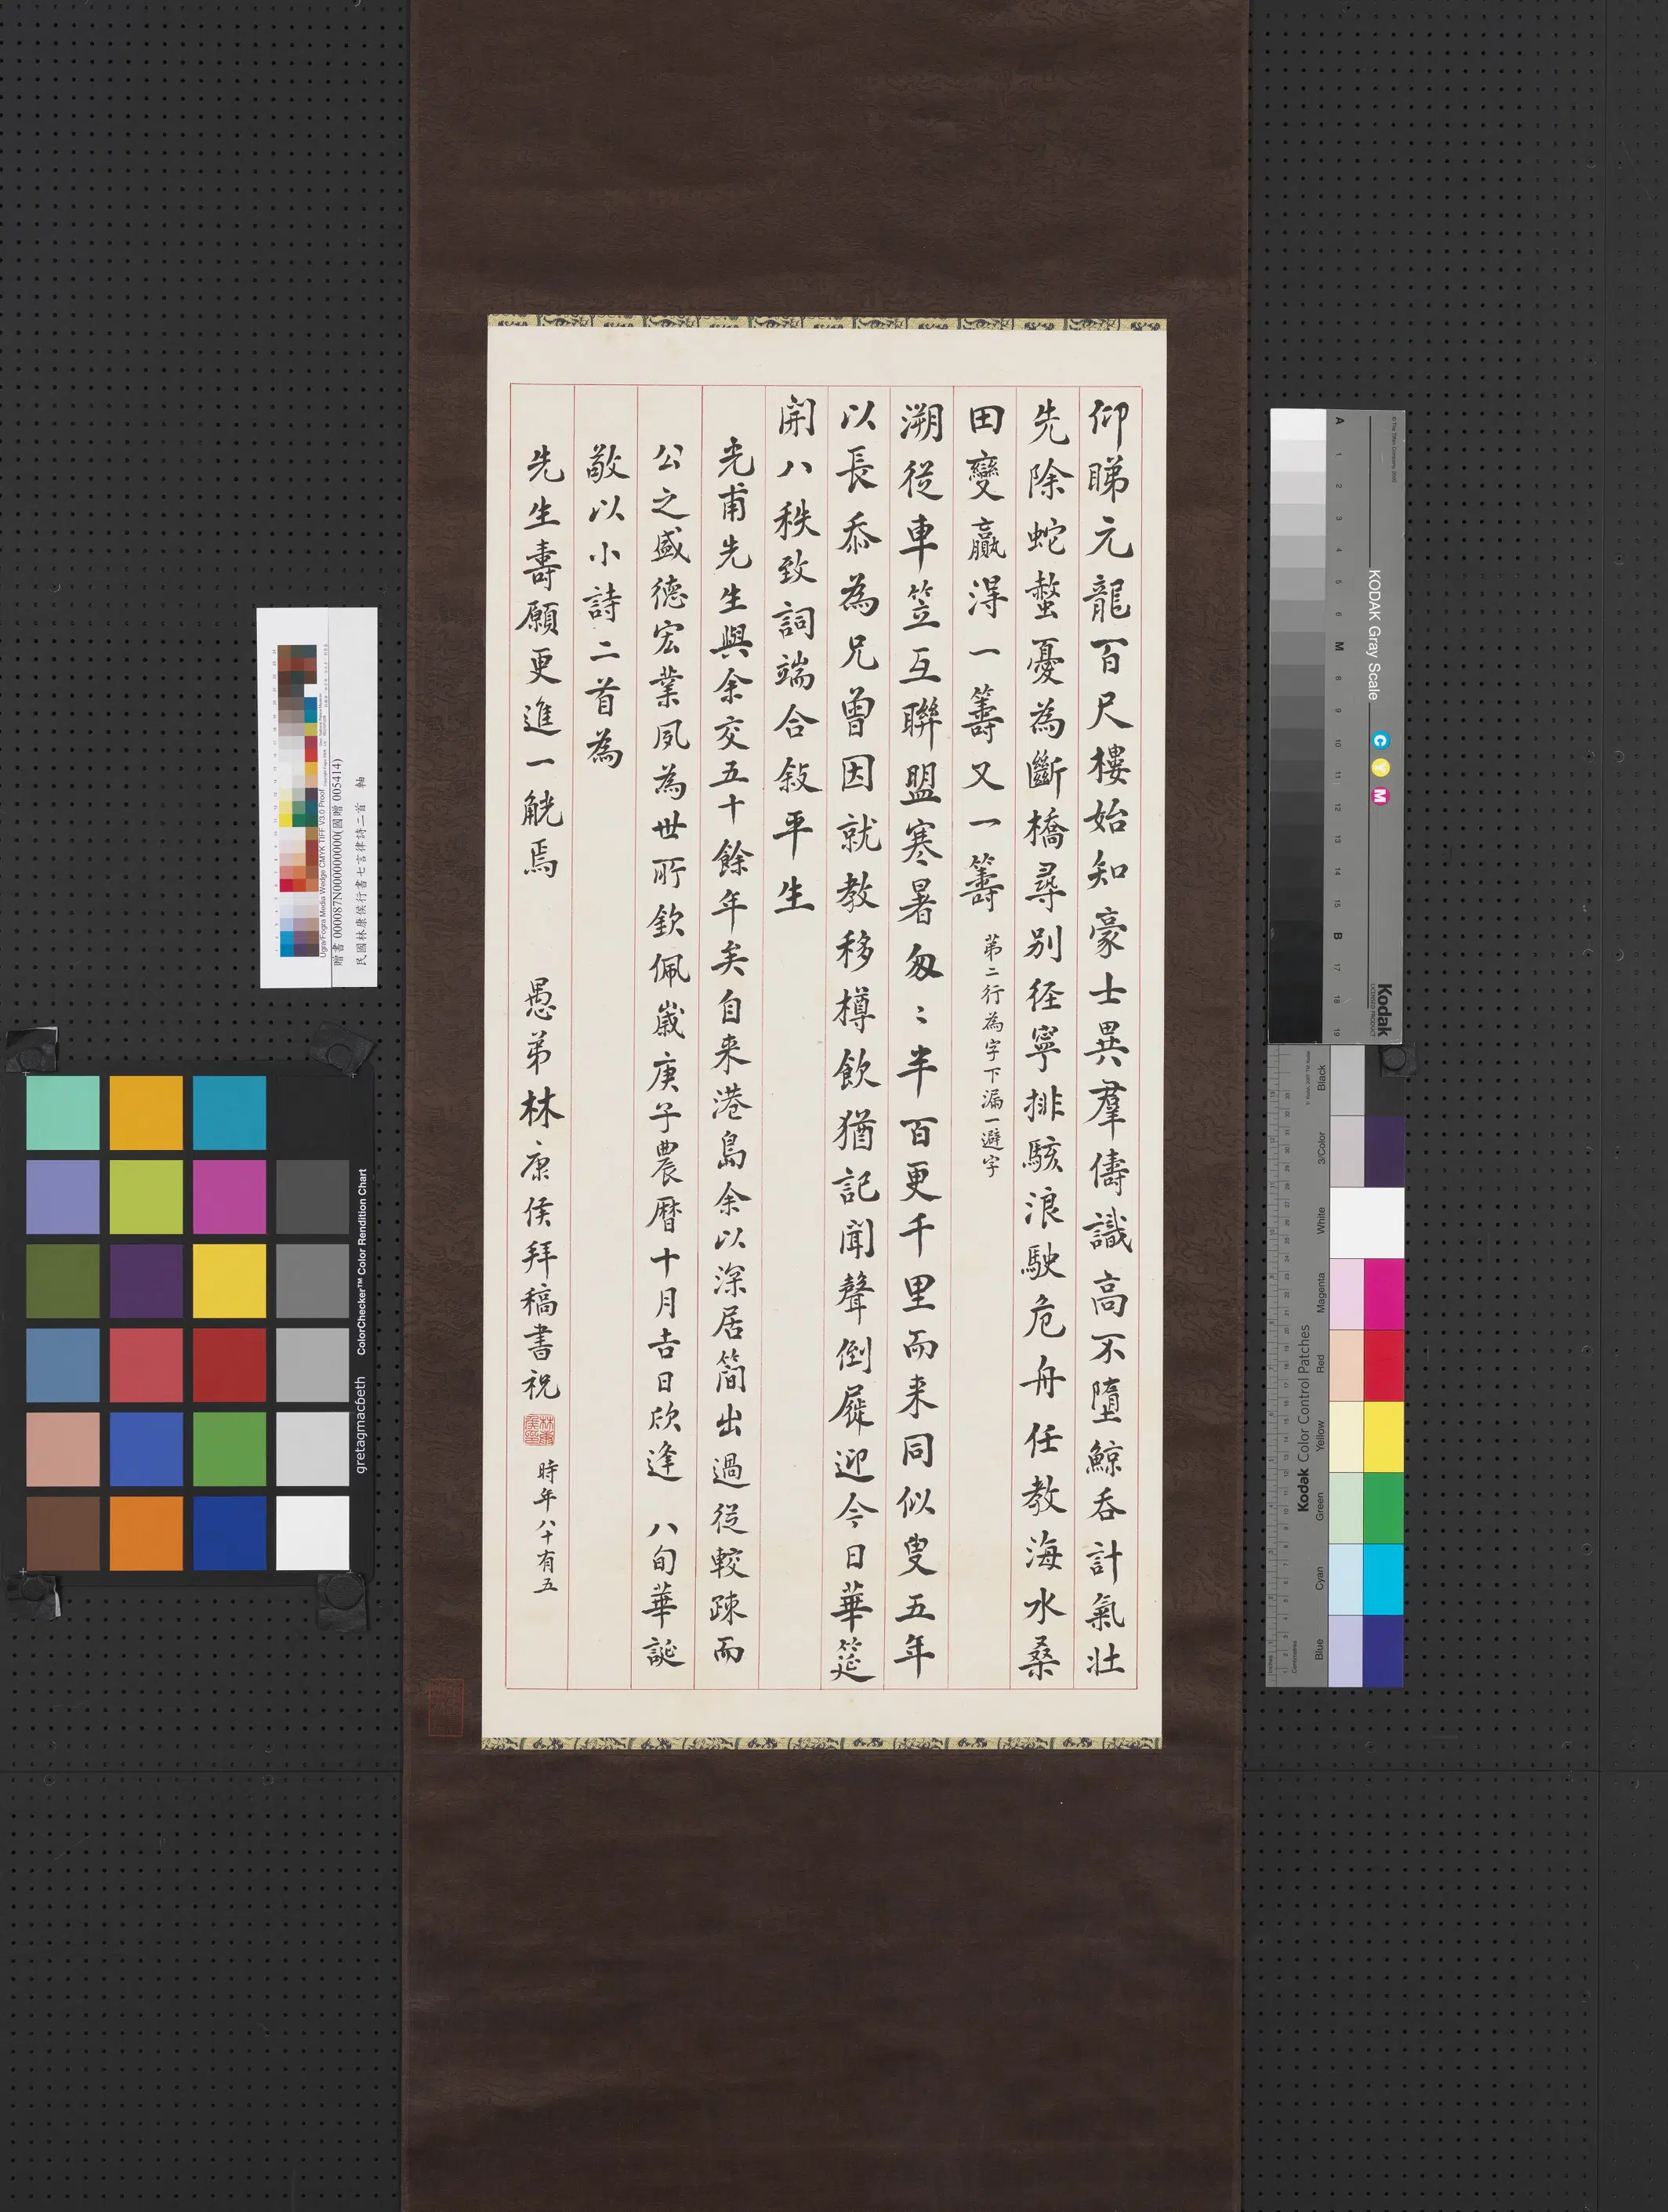 仰睇元龍百尺樓始知豪士異羣儔識高不墮鯨吞計氣壯
先除蛇螫憂為斷橋尋別徑寧排駭浪駛危舟任教海水桑
田變贏得一籌又一籌 第二行為字下漏一避字
溯從車笠互聯盟寒暑匆〻半百更千里而来同似叟五年
以長忝為兄曾因就教移樽飲猶記聞聲倒屣迎今日華筵
開八秩致詞端合敍平生
光甫先生與余交五十餘年矣自来港島余以深居簡出過從較疎而
公之盛德宏業夙為世所欽佩歲庚子農曆十月吉日欣逢 八旬華誕
敬以小詩二首為
先生壽願更進一觥焉 愚弟林康侯拜稿書祝 時年八十有五
林康侯印
贈書 000087N000000000(國贈 005414)
民國林康侯行書七言律詩二首 軸
Ugra/Fogra Media Wedge CMYK TIFF V3.0 Proof
ColorChecker™ Color Rendition Chart
gretagmacbeth
© The Tiffen Company, 2000
KODAK Gray Scale
C Y M
Kodak
LICENSED PRODUCT
A 1 2 3 4 5 6 M 8 9 10 11 12 13 14 15 B 17 18 19
Kodak Color Control Patches
Blue Cyan Green Yellow Red Magenta White 3/Color Black
Inches
Centimetres